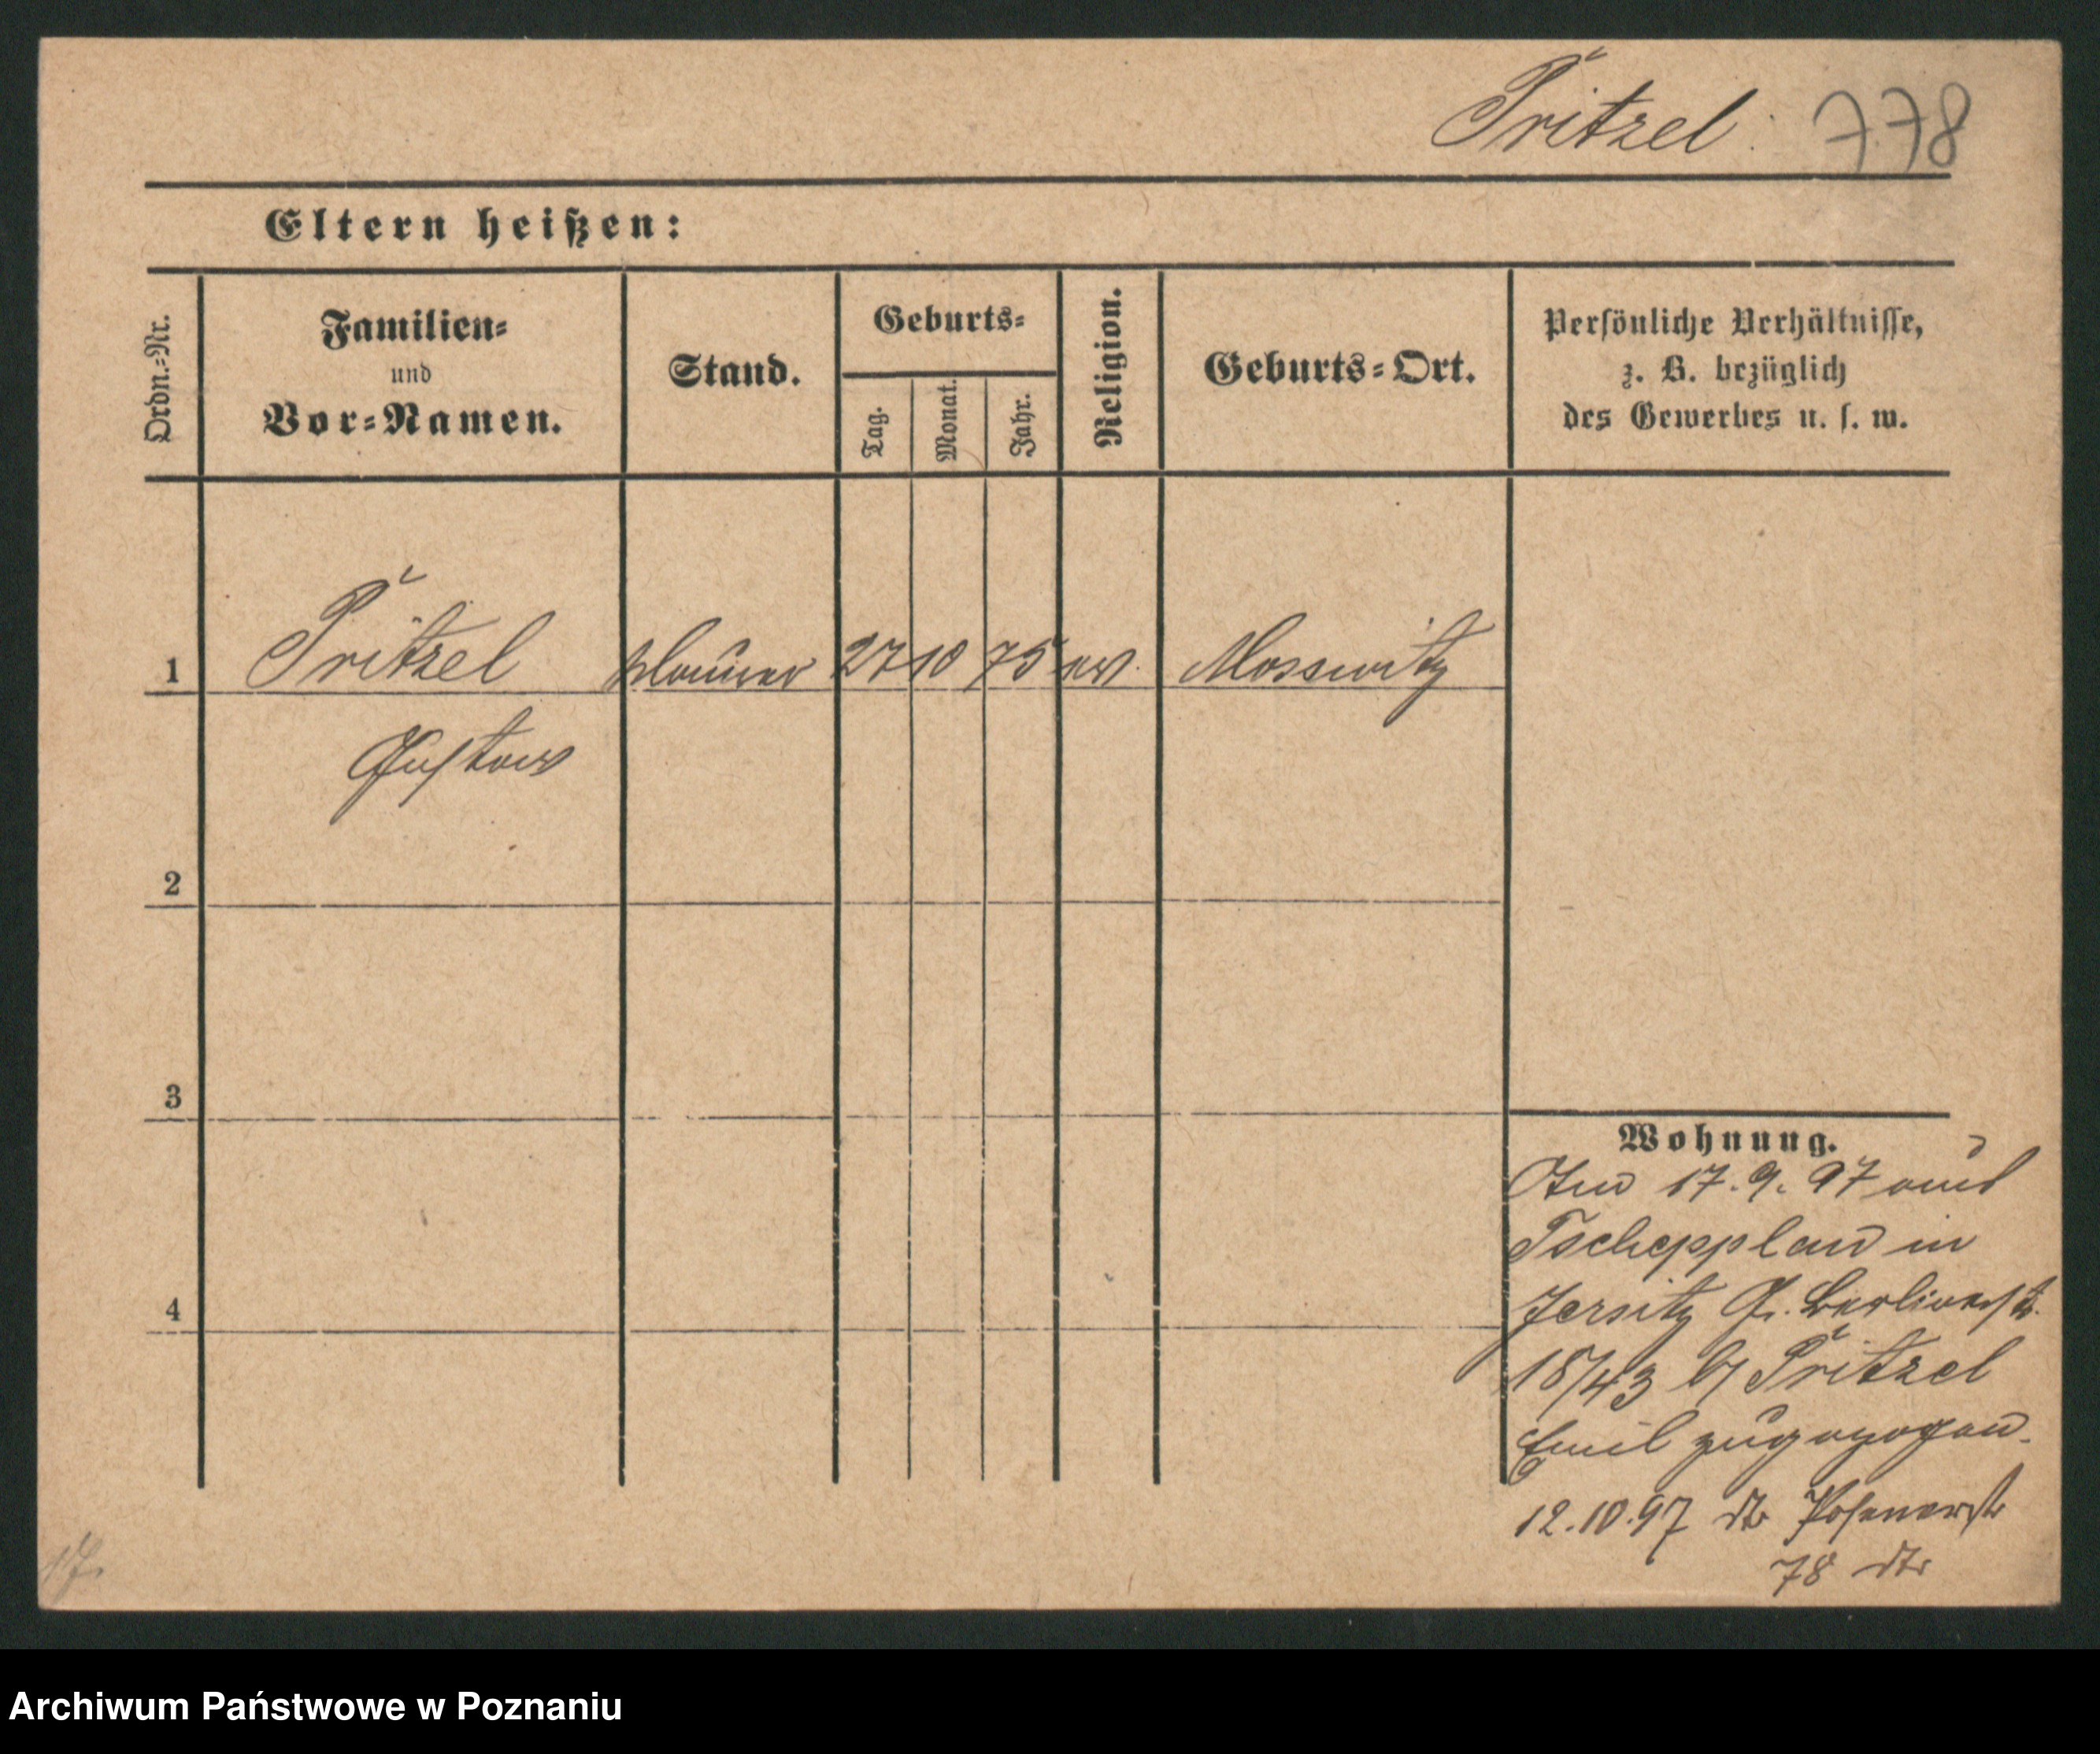 Pritzel. 778
Eltern heißen:
Ordn.-Nr.
Familien-
und
Vor-Namen.
Stand.
Geburts-
Tag.
Monat.
Jahr.
Religion.
Geburts-Ort.
Persönliche Verhältnisse,
z. B. bezüglich
des Gewerbes u. s. w.
1 Pritzel Maurer 27 10 75 ev. Mosswitz
Gustav
2
3
4
Wohnung.
Am 17.9.97 aus
Tschepplau in
Jersitz Gr. Berlinerstr.
18/43 b/ Pritzel
Emil zugezogen.
12.10.97 Posenerstr
78
Archiwum Państwowe w Poznaniu